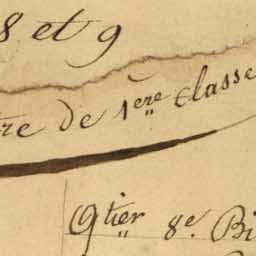 8 et 9
tre de 1ère Classe
9tier 8e. Bi